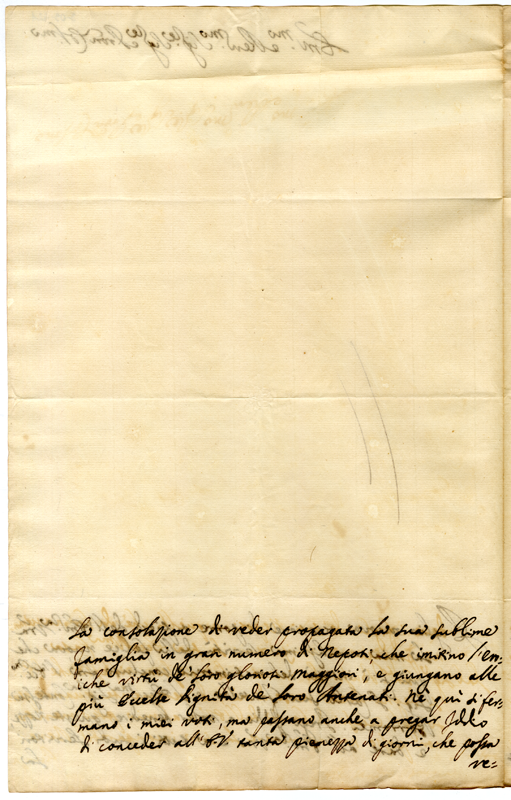 la consolazione di veder propagata la sua sublime
famiglia in gran numero di Nepoti, che imitino l'ero-
iche virtù de' loro gloriosi Maggiori, e giungano alle
più eccelse dignità de' loro Antenati. Nè quì si fer-
mano i miei voti, ma passano anche a pregar Iddio
di conceder all' EV. tanta pienezza di giorni, che possa
ve=